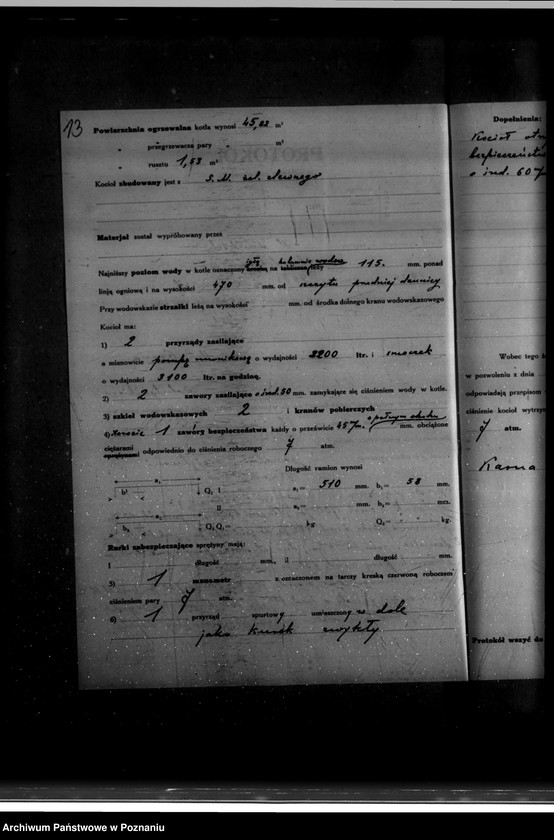 13
Powierzchnia ogrzewalna kotła wynosi 45,22 m²
„ przegrzewacza pary „ m²
„ rusztu 1,53 m²
Kocioł zbudowany jest z S. M. żel. zlewnego
Materjał został wypróbowany przez
Najniższy poziom wody w kotle oznaczony na leży 115. mm. ponad
linją ogniową i na wysokości 470 mm. od szczytu przedniej dennicy
Przy wodowskazie strzałki leżą na wysokości mm. od środka dolnego kranu wodowskazowego
Kocioł ma:
1) 2 przyrządy zasilające
a mianowicie pompę o wydajności 2200 ltr. i smoczek
o wydajności 3100 ltr. na godzinę.
2) 2 zawory zasilające o śred. 50 mm. zamykające się ciśnieniem wody w kotle.
3) szkieł wodowskazowych 2 i kranów pobierczych
4) 1 zawory bezpieczeństwa każdy o prześwicie 45 mm. obciążone
ciężarami
sprężynami odpowiednio do ciśnienia roboczego 7 atm.
Długość ramion wynosi
a₁ = 510 mm. b₁ = 58 mm.
a₁
b¹ Q₁ I
II a₂ = mm. b₂ = mm.
a₂
b₂ Q₂ Q₁ = kg Q₂ = kg.
Rurki zabezpieczające sprężyny mają:
I długość mm., II długość mm.
5) 1 manometr z oznaczonem na tarczy kreską czerwoną roboczem
ciśnieniem pary 7 atm.
6) 1 przyrząd spustowy umieszczony w dole
jako kurek zwykły.
Dopełnienia:
Kocioł
bezpieczeństwa
o śred. 60
Wobec tego
w pozwoleniu z dnia
odpowiadają przepisom
ciśnienie kocioł wytrzym
7 atm.
Protokół wszyć do
Archiwum Państwowe w Poznaniu